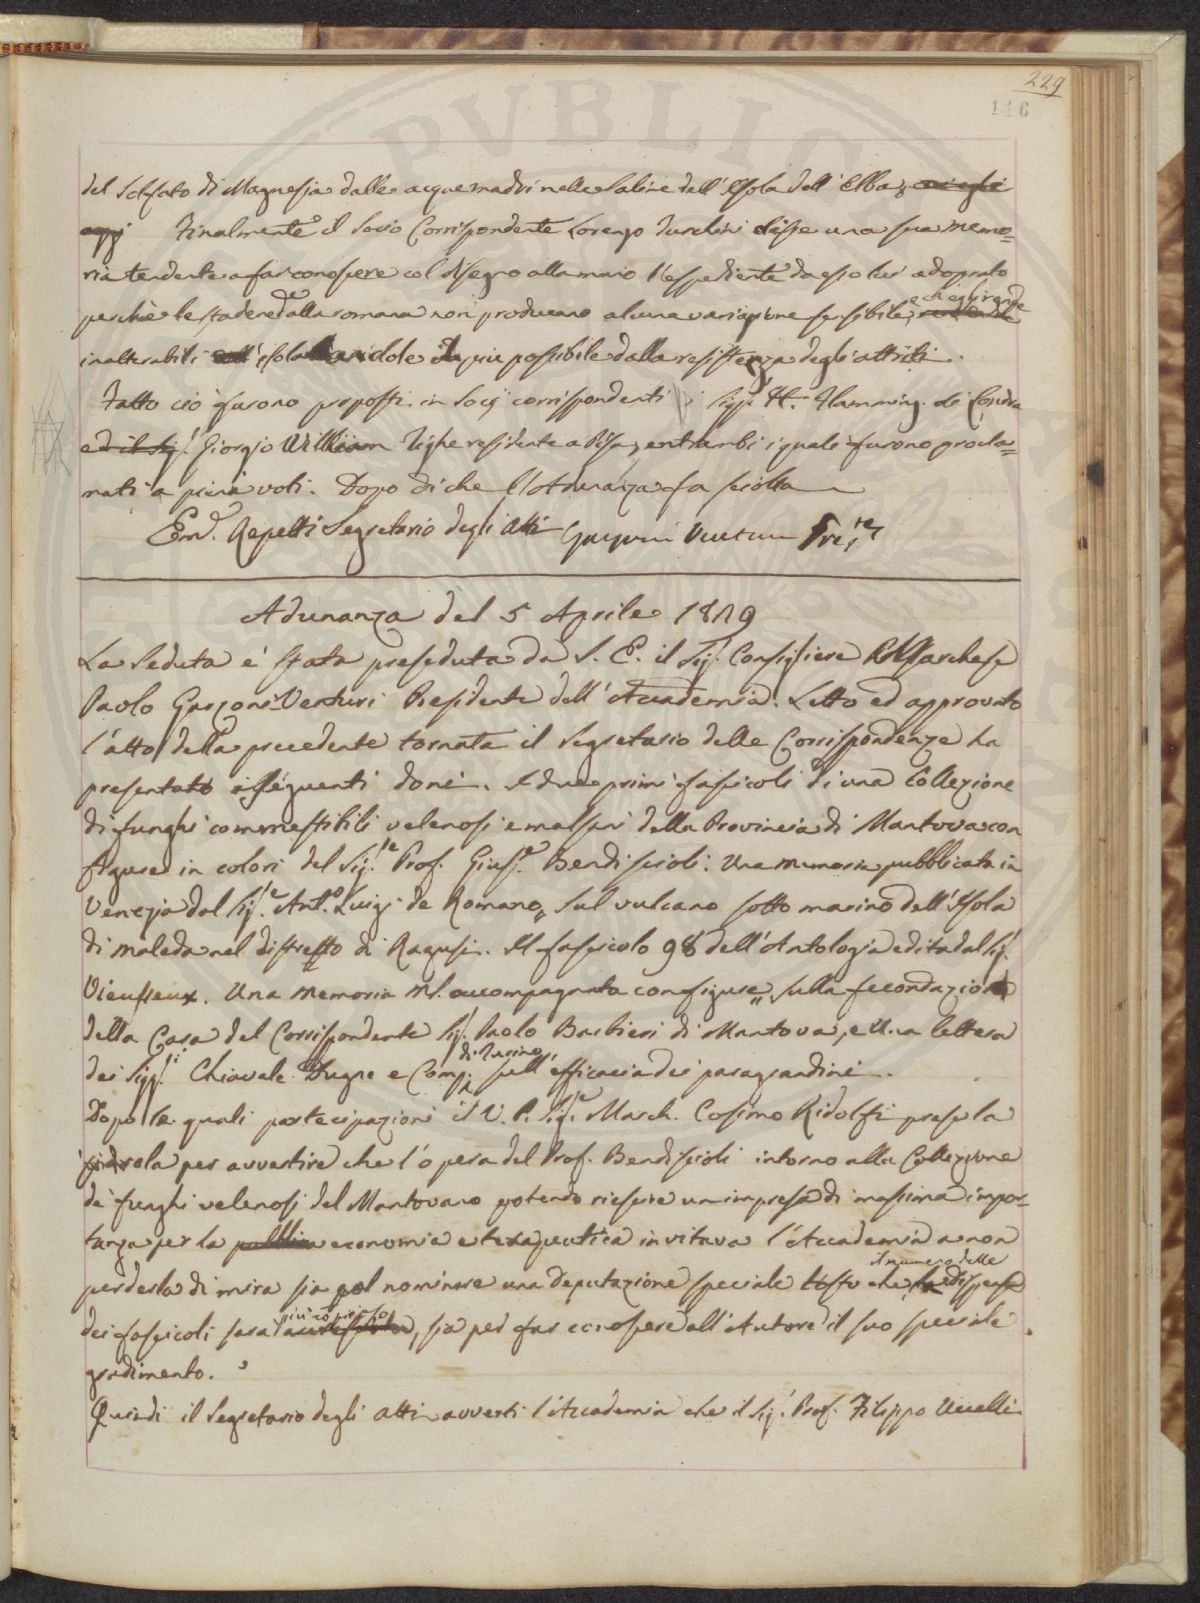 229
116
del Solfato di Magnesia dalle acque madri nelle Saline dell'Isola dell'Elba,
oggi Finalmente il Socio Corrispondente Lorenzo Turchini lesse una sua memo=
ria tendente a far conoscere col disegno alla mano l'espediente da esso lui adoprato
perchè le stadere alla romana non producano alcuna variazione sensibile, e di equirende
inalterabili isolandole il più possibile dalla resistenza degli attriti.
Fatto ciò furono proposti in Socj corrispondenti i Sigg. H. Flamming di Londra
ed il Sig. Giorgio William Tighe residente a Pisa, entrambi i quali furono procla=
mati a pieni voti. Dopo di che l'Adunanza fu sciolta
Em. Repetti Segretario degli Atti Garzoni Venturi Pres.te
Adunanza del 5 Aprile 1829
La Seduta e' stata preseduta da S. E. il Sig. Consigliere Marchese
Paolo Garzoni Venturi Presidente dell'Accademia. Letto ed approvato
l'atto della precedente tornata il Segretario delle Corrispondenze ha
presentato i seguenti doni. I due primi fascicoli di una Collezione
di funghi commestibili velenosi e malsani della Provincia di Mantova con
figure in colori del Sig.re Prof. Gius.e Bendiscioli. Una memoria pubblicata in
Venezia dal Sig.re Ant.o Luigi de Romano „ Sul vulcano sotto marino dell'Isola
di Maleda nel distretto di Ragusi. Il fascicolo 98 dell'Antologia edita dal Sig.
Vieusseux. Una memoria MS. accompagnata con figure „ Sulla fecondazione
della Cara del Corrispondente Sig. Paolo Barbieri di Mantova, e Una lettera
di Turino
dei Sigg.ri Chiavale Dugne e Comp. sull'efficacia dei paragrandini.
Dopo le quali partecipazioni il V. P. Sig.e March. Cosimo Ridolfi prese la
parola per avvertire che l'opera del Prof. Bendiscioli intorno alla Collezione
de' funghi velenosi del Mantovano potendo riescire un impresa di massima impor=
tanza per la pubblica economia e terapeutica invitava l'Accademia a non
il numero delle
perderla di mira sia pel nominare una Deputazione speciale tosto che la dispensa
più copioso
dei fascicoli sara accresciuta, sia per far conoscere all'Autore il suo speciale
gradimento.
Quindi il Segretario degli Atti avverti l'Accademia che il Sig. Prof. Filippo Uccelli